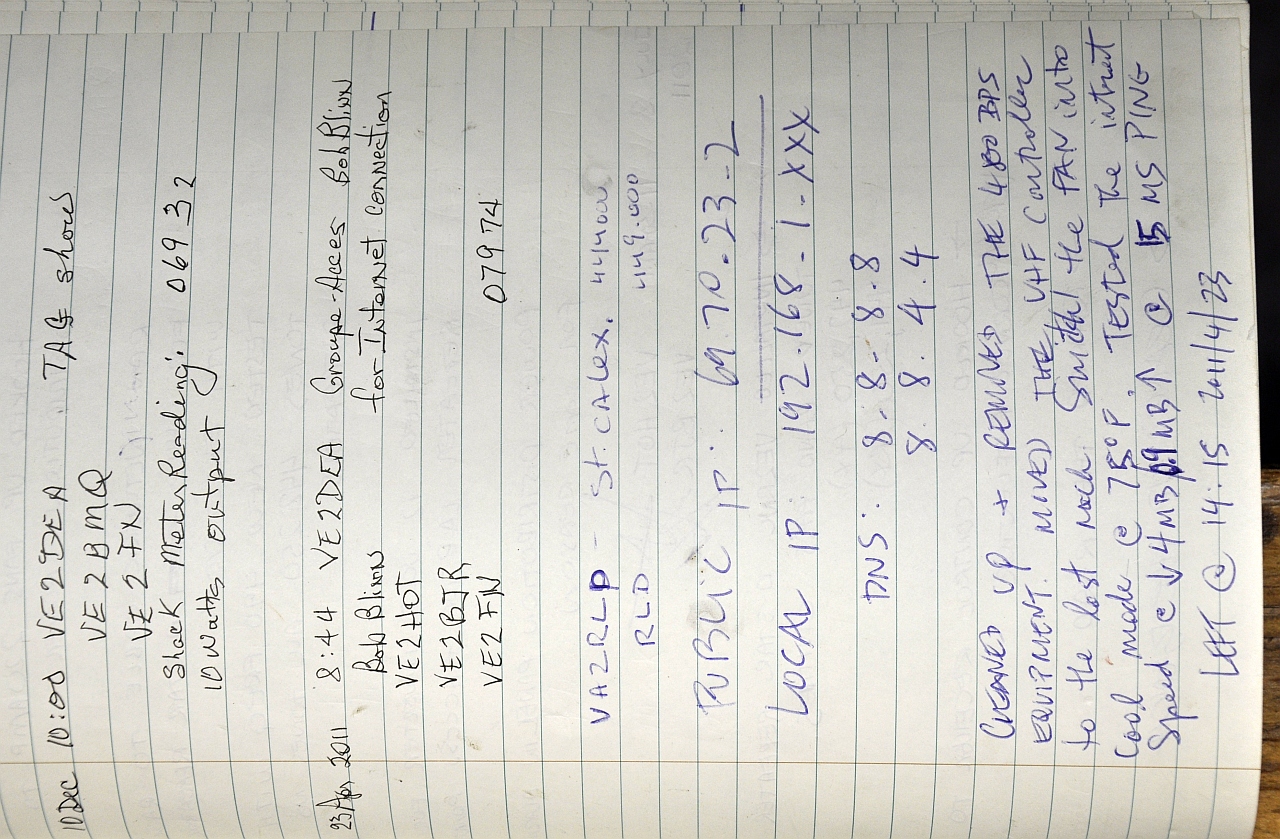 10 Dec 10:00 VE2DEA TAG shows
VE2BMQ
VE2FN
Shack Meter Reading: 06932
10 Watts output
23 Apr 2011 8:44 VE2DEA Groupe-Acces Bob Blinn
Bob Blinn for Internet connection
VE2HOT
VE2BJR
VE2FN 07974
VA2RLD - St. CAlex. 444000
RLD 449.000
PUBLIC IP: 69 70.23-2
LOCAL IP 192.168-1-XXX
DNS: 8-8-8.8
8.8.4.4
CLEANED UP + REMOVED THE 4800 BPS
EQUIPMENT. MOVED THE VHF Controller
to the last rack. Switch the FAN into
Cool mode @ 75°F. TESTED The
Speed @ ↓4MB/0.9MB↑ @ 15 MS PING
LEFT @ 14:15 2011/4/23